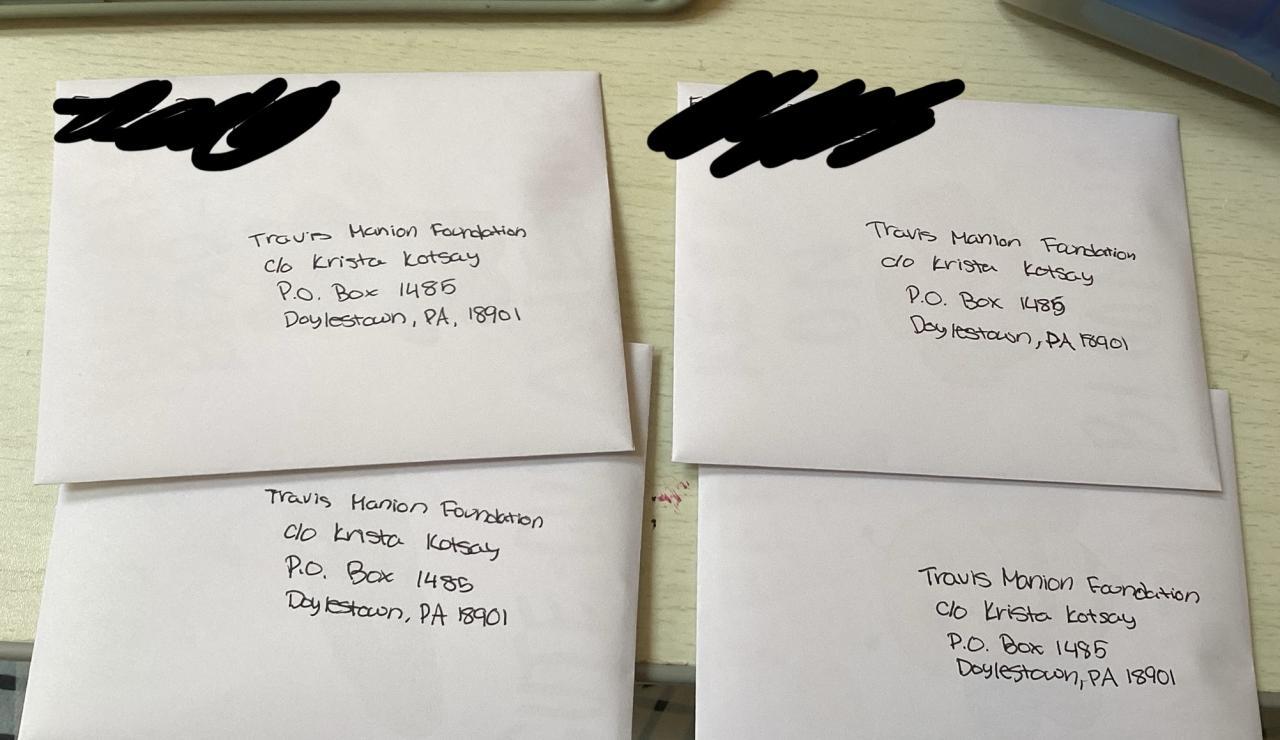 Travis Manion Foundation
c/o Krista Kotsay
P.O. Box 1485
Doylestown, PA, 18901
Travis Manion Foundation
c/o Krista Kotsay
P.O. Box 1485
Doylestown, PA 18901
Travis Manion Foundation
c/o Krista Kotsay
P.O. Box 1485
Doylestown, PA 18901
Travis Manion Foundation
c/o Krista Kotsay
P.O. Box 1485
Doylestown, PA 18901